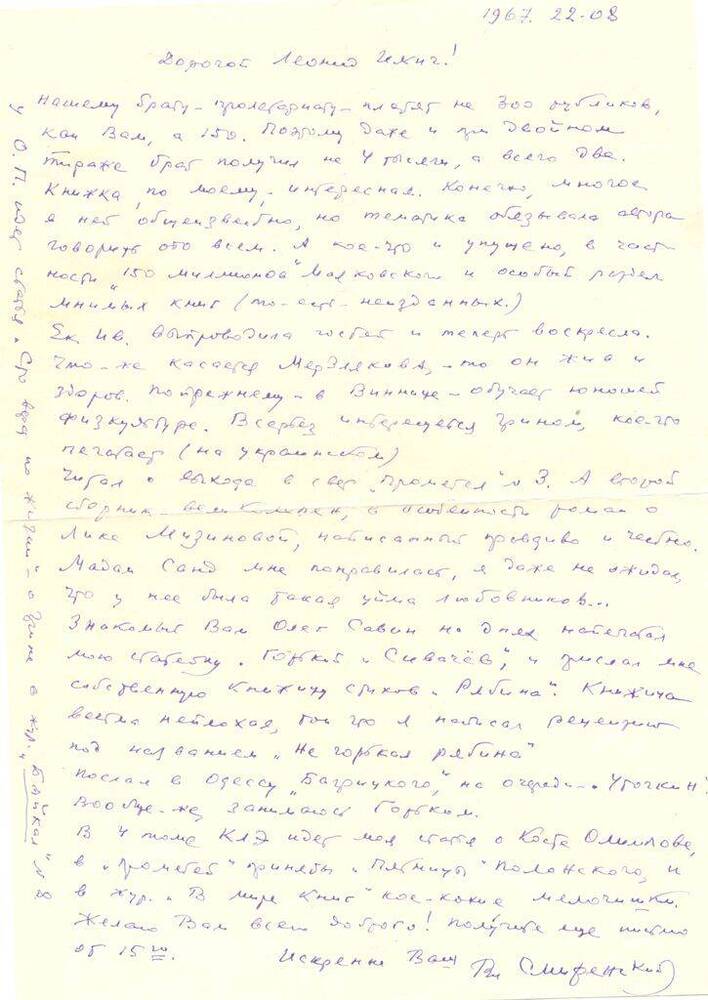 1967. 22-08
Дорогой Леонид Ильич!
Нашему брату-пролетариату-платят не 300 рубликов,
как Вам, а 150. Поэтому даже и при двойном
тираже брат получил не 4 тысячи, а всего два.
Книжка, по моему, интересная. Конечно, многое
в ней общеизвестно, но тематика обязывала автора
говорить обо всем. А кое-что и упущено, в част
ности „150 миллионов" Маяковского и особый раздел
мнимых книг (то-есть-неизданных.)
Ек. Ив. выпроводила гостей и теперь воскресла.
Что-же касается Мерзлякова,-то он жив и
здоров. По прежнему-в Виннице-обучает юношей
физкультуре. Всерьез интересуется Грином, кое-что
печатает (на украинском)
Читал о выходе в свет „Прометея" № 3. А второй
сборник-великолепен, в особенности роман о
Лике Мизиновой, написанный правдиво и честно.
Мадам Санд мне понравилась, я даже не ожидал,
что у нее была такая уйма любовников...
Знакомый Вам Олег Савин на днях напечатал
мою статейку „Горький и Сивачёв", и прислал мне
собственную книжицу стихов „Рябина". Книжица
весьма неплохая, так что я написал рецензию
под названием „Не горькая рябина"
Послал в Одессу „Багрицкого," на очереди-„Уточкин".
Вообще-же, занимаюсь Горьким.
В 4 томе КЛЭ идет моя статья о Косте Олимпове,
в „Прометей" приняты „Пятницы" Полонского, и
в жур. „В мире книг" кое-какие мелочишки.
Желаю Вам всего доброго! Получите еще письмо
от 15 го.
Искренне Ваш Вл Смиренский
У О. П. идет статья „Сто верст по жизни"-о Грине в жур. „Байкал" №